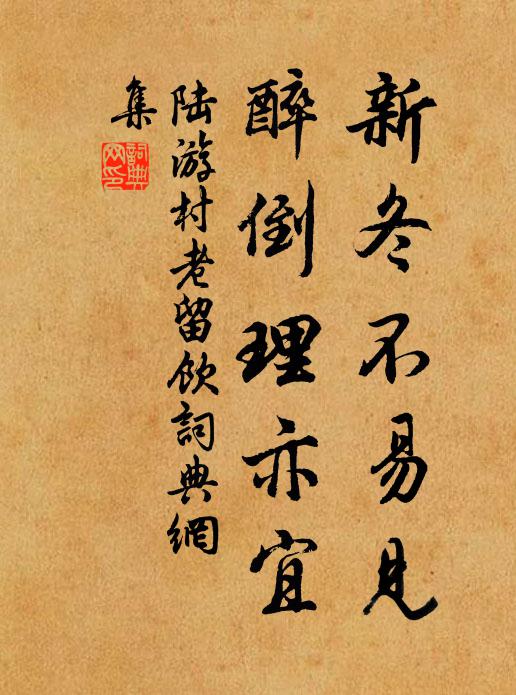 新冬不易見
醉倒理亦宜
陆游村老留飲詞典網
集
詞典
网印